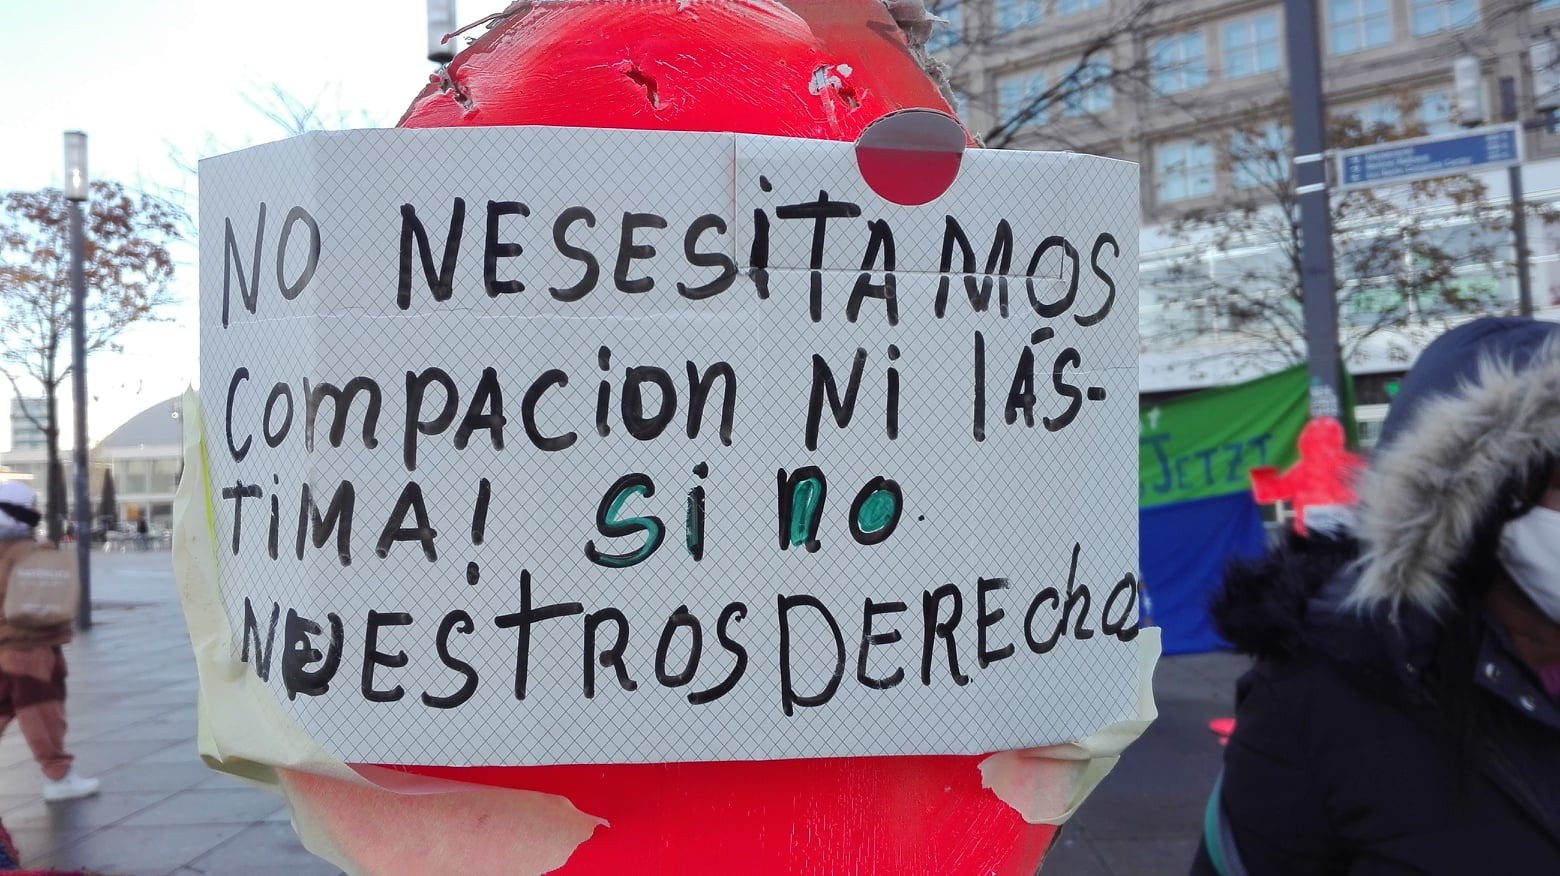 NO NESESiTAMOS
Compacion Ni lÁS-
TiMA! Si no.
NUESTROS DERECho
JETZT